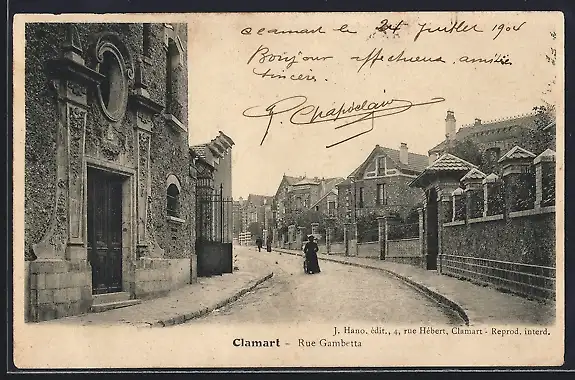 Clamart le 24 juillet 1904
Bonjour affectueux amitié
sincère.
P. Chapdelaw
J. Hano, édit., 4, rue Hébert, Clamart - Reprod. interd.
Clamart - Rue Gambetta